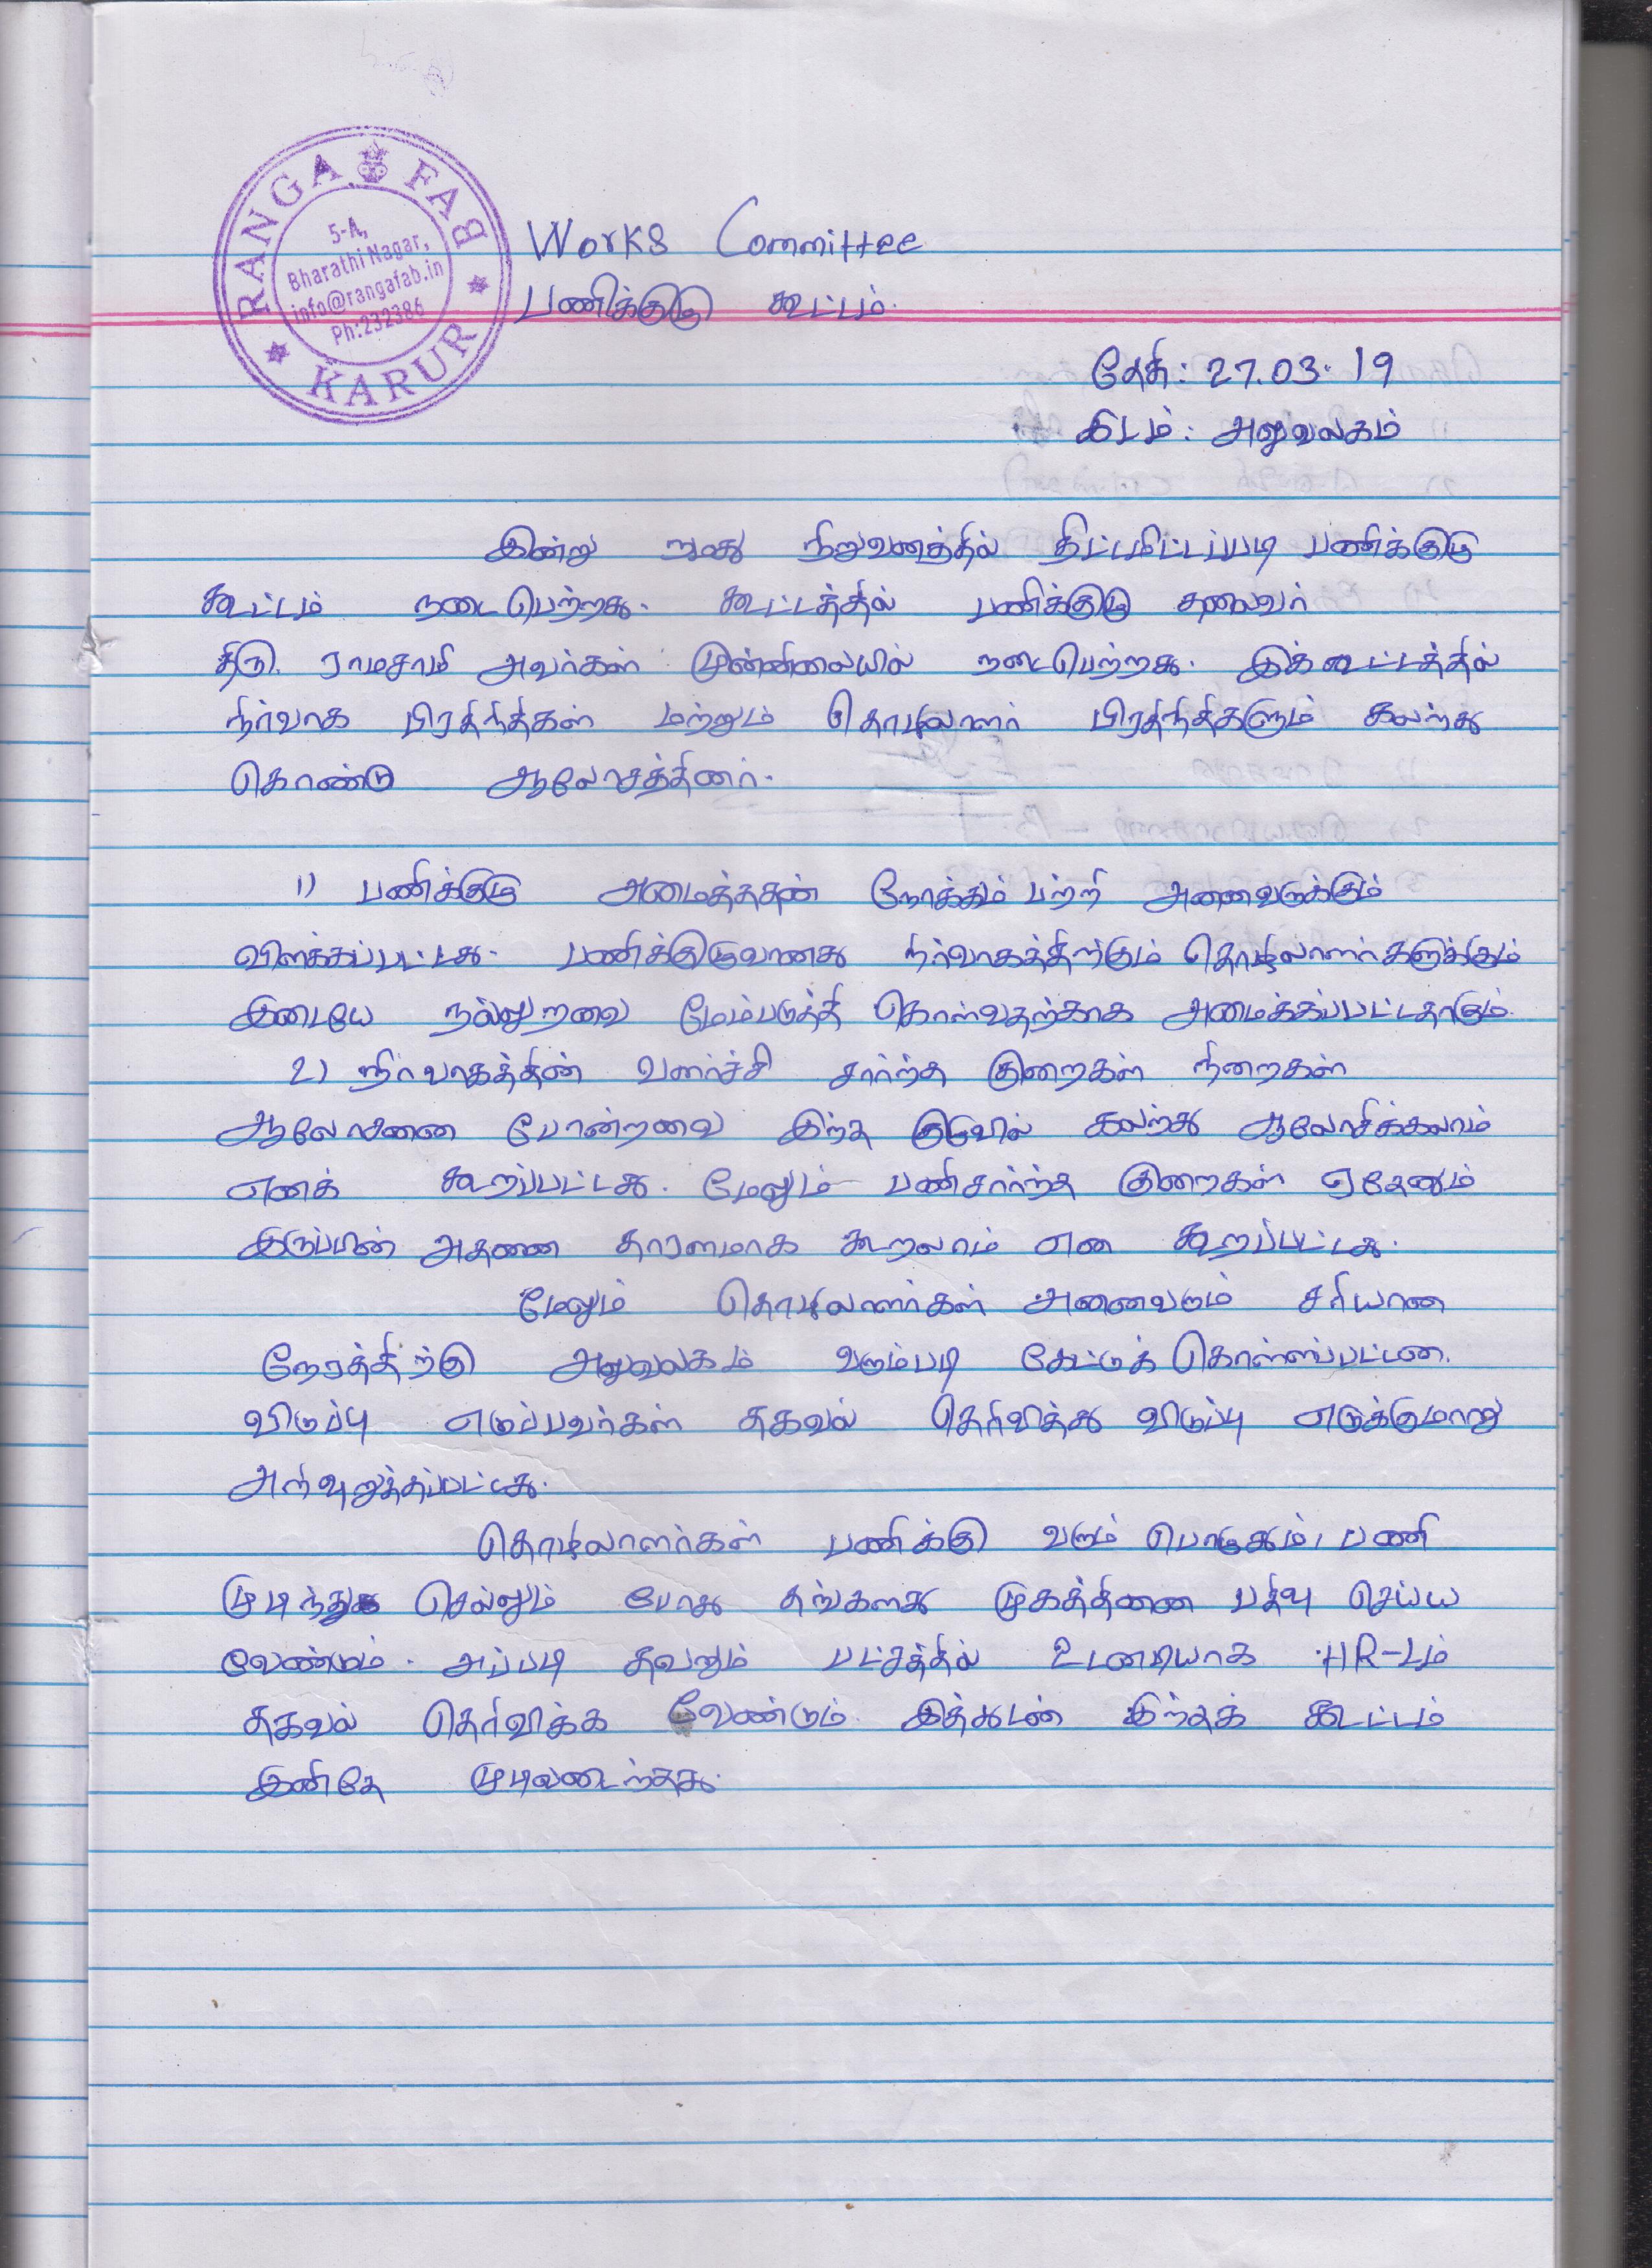 RANGA FAB
5-A,
Bharathi Nagar,
info@rangafab.in
Ph:232386
KARUR
Works Committee
பணிக்குழு கூட்டம்.
தேதி: 27.03.19
இடம்: அலுவலகம்
இன்று நமது நிறுவனத்தில் திட்டமிட்டப்படி பணிக்குழு
கூட்டம் நடைபெற்றது. கூட்டத்தில் பணிக்குழு தலைவர்
திரு. ராமசாமி அவர்கள் முன்னிலையில் நடைபெற்றது. இக்கூட்டத்தில்
நிர்வாக பிரதிநிதிகள் மற்றும் தொழிலாளர் பிரதிநிதிகளும் கலந்து
கொண்டு ஆலோசத்தினர்.
1) பணிக்குழு அமைத்ததன் நோக்கம் பற்றி அனைவருக்கும்
விளக்கப்பட்டது. பணிக்குழுவானது நிர்வாகத்திற்கும் தொழிலாளர்களுக்கும்
இடையே நல்லுறவை மேம்படுத்தி கொள்வதற்காக அமைக்கப்பட்டதாகும்.
2) நிர்வாகத்தின் வளர்ச்சி சார்ந்த குறைகள் நிறைகள்
ஆலோசனை போன்றவை இந்த குழுவில் கலந்து ஆலோசிக்கலாம்
எனக் கூறப்பட்டது. மேலும் பணிசார்ந்த குறைகள் ஏதேனும்
இருப்பின் அதனை தாரளமாக கூறலாம் என கூறப்பட்டது.
மேலும் தொழிலாளர்கள் அனைவரும் சரியான
நேரத்திற்கு அலுவலகம் வரும்படி கேட்டுக் கொள்ளப்பட்டன.
விடுப்பு எடுப்பவர்கள் தகவல் தெரிவித்து விடுப்பு எடுக்குமாறு
அறிவுறுத்தப்பட்டது.
தொழிலாளர்கள் பணிக்கு வரும் பொழுதும், பணி
முடிந்து செல்லும் போது தங்களது முகத்தினை பதிவு செய்ய
வேண்டும். அப்படி தவறும் பட்சத்தில் உடனடியாக HR-டம்
தகவல் தெரிவிக்க வேண்டும். இத்துடன் இந்தக் கூட்டம்
இனிதே முடிவடைந்தது.